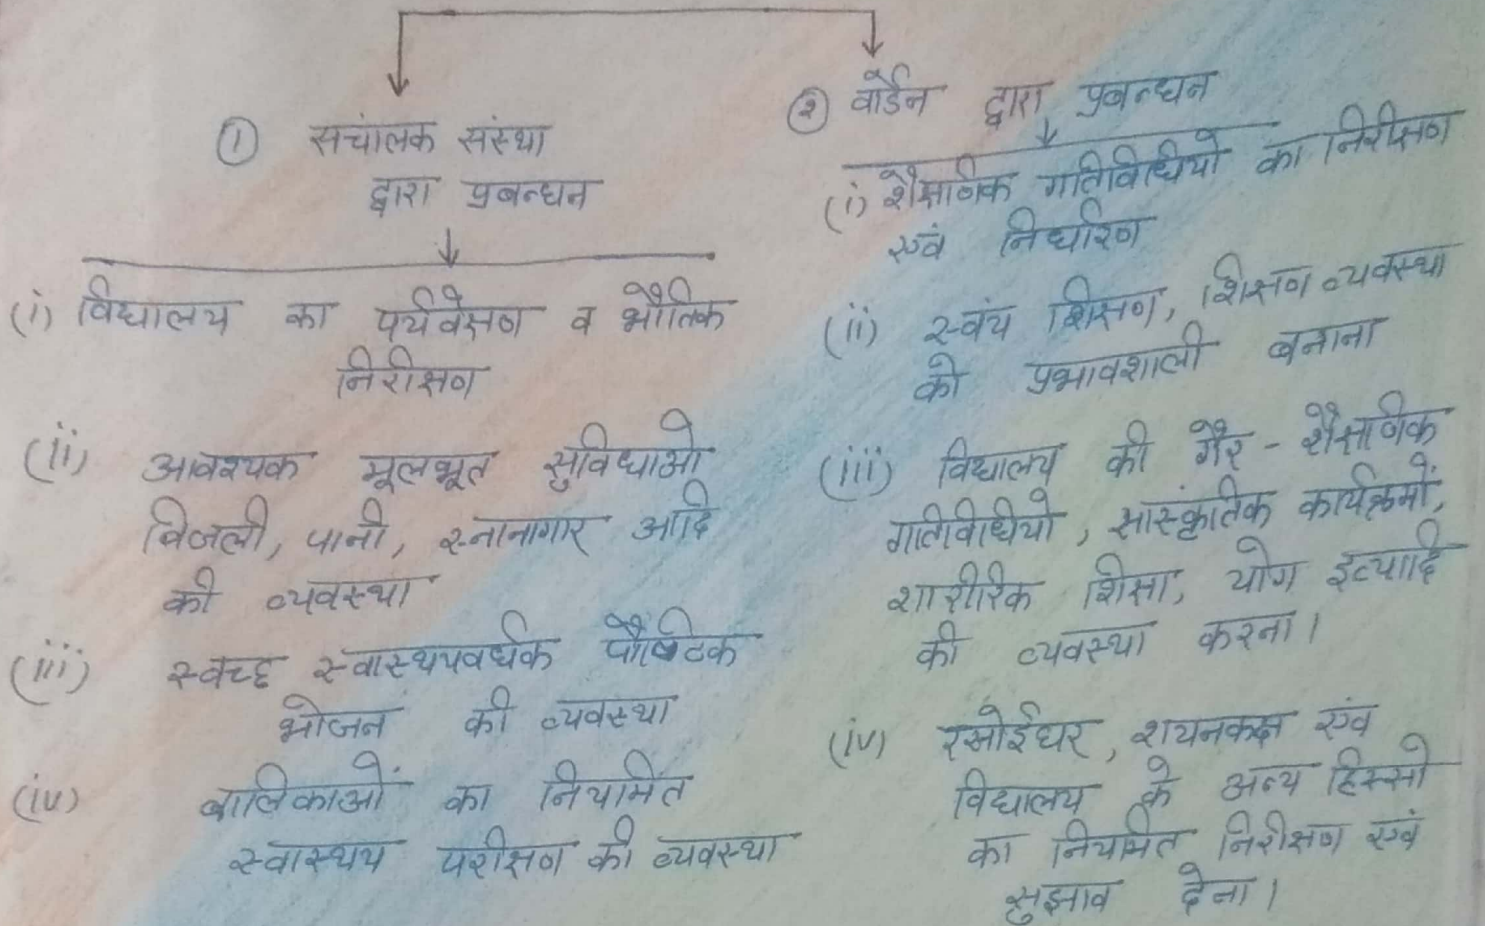 ① सचांलक संस्था
द्वारा प्रबन्धन
(i) विद्यालय का पर्यवेक्षण व भौतिक
निरीक्षण
(ii) आवश्यक मूलभूत सुविधाओ
बिजली, पानी, स्नानागार आदि
की व्यवस्था
(iii) स्वच्छ स्वास्थयवर्धक पौष्टिक
भोजन की व्यवस्था
(iv) बालिकाओं का नियमित
स्वास्थय परीक्षण की व्यवस्था
② वार्डन द्वारा प्रबन्धन
(i) शैक्षणिक गतिविधियो का निरीक्षण
एवं निर्धारण
(ii) स्वंय शिक्षण, शिक्षण व्यवस्था
को प्रभावशाली बनाना
(iii) विद्यालय की गैर - शैक्षणिक
गतिविधियो, सांस्कृतिक कार्यक्रमों,
शारीरिक शिक्षा, योग इत्यादि
की व्यवस्था करना।
(iv) रसोईघर, शयनकक्ष एंव
विद्यालय के अन्य हिस्सो
का नियमित निरीक्षण एवं
सुझाव देना।